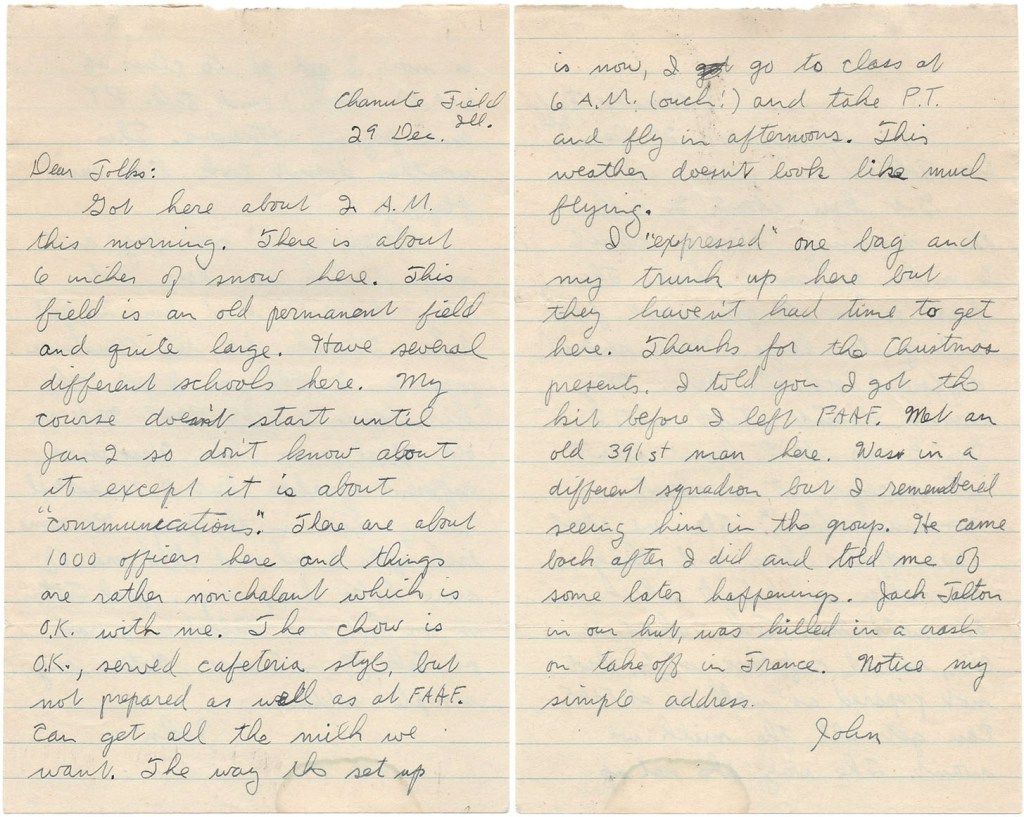 Chanute Field
Ill.
29 Dec.
Dear Folks:
Got here about 2 A.M.
this morning. There is about
6 inches of snow here. This
field is an old permanent field
and quite large. Have several
different schools here. My
course doesn't start until
Jan 2 so don't know about
it except it is about
"communications". There are about
1000 officers here and things
are rather nonchalant which is
O.K. with me. The chow is
O.K., served cafeteria style, but
not prepared as well as at FAAF.
Can get all the milk we
want. The way the set up
is now, I go to class at
6 A.M. (ouch!) and take P.T.
and fly in afternoons. This
weather doesn't look like much
flying.
I "expressed" one bag and
my trunk up here but
they haven't had time to get
here. Thanks for the Christmas
presents. I told you I got the
kit before I left FAAF. Met an
old 391st man here. Was in a
different squadron but I remembered
seeing him in the group. He came
back after I did and told me of
some later happenings. Jack
in our hut, was killed in a crash
on take off in France. Notice my
simple address.
John